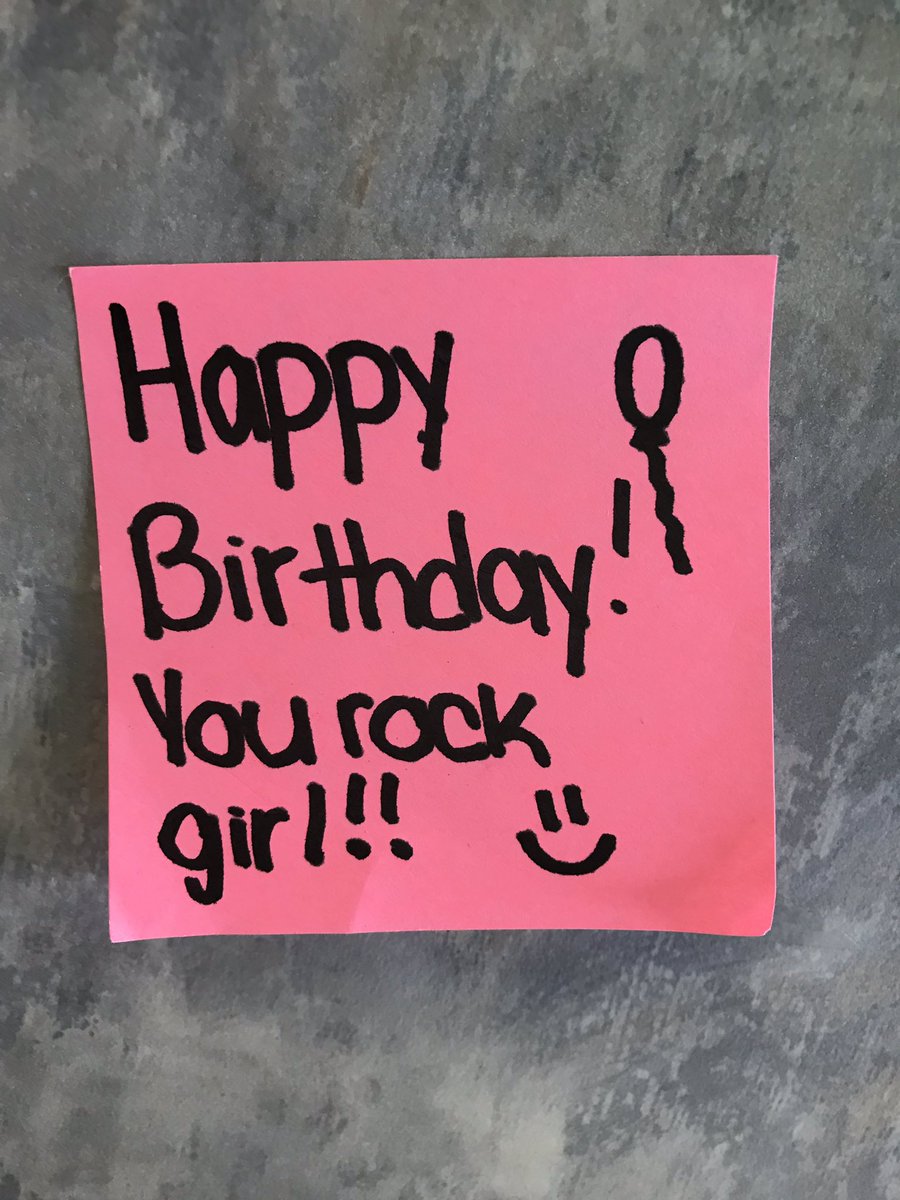 Happy
Birthday!
You rock
girl!!